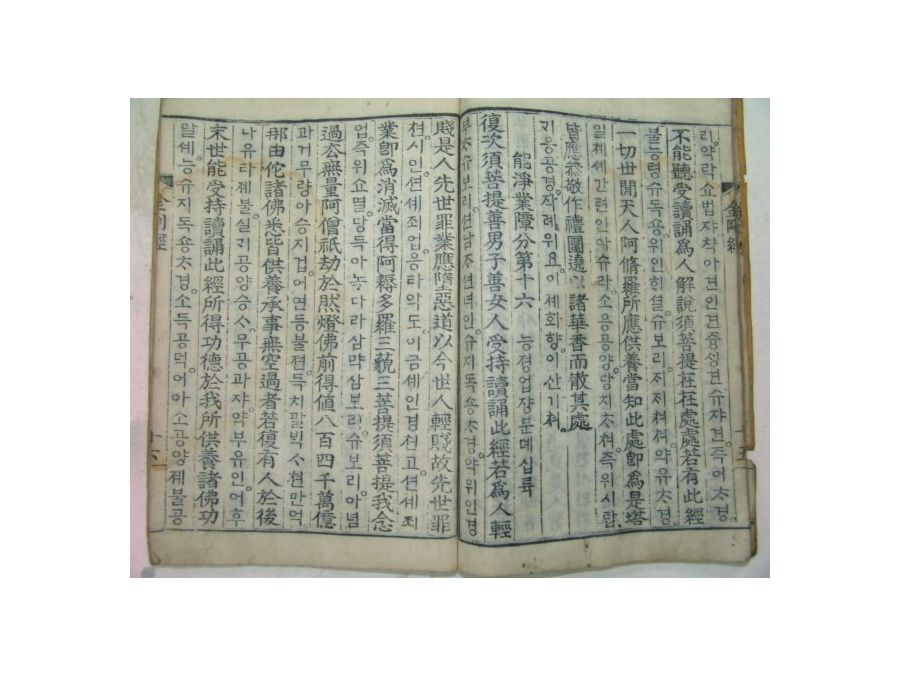 리약락쇼법쟈챡아견인견즁싱견슈쟈견즉어ᄎᆞ경
不能聽受讀誦爲人解說須菩提在在處處若有此經
불능텽슈독숑위인ᄒᆡ셜슈보리ᄌᆡᄌᆡ쳐쳐약유ᄎᆞ경
一切世間天人阿脩羅所應供養當知此處卽爲是塔
일쳬셰간텬인아슈라소응공양당지ᄎᆞ쳐즉위시탑
皆應恭敬作禮圍遶以諸華香而散其處
ᄀᆡ응공경작례위요이졔화향이산기쳐
能淨業障分第十六 능졍업쟝분뎨십륙
復次須菩提善男子善女人受持讀誦此經若爲人輕
부ᄎᆞ슈보리션남ᄌᆞ션녀인슈지독숑ᄎᆞ경약위인경
賤是人先世罪業應墮惡道以今世人輕賤故先世罪
쳔시인션셰죄업응타악도이금셰인경쳔고션셰죄
業卽爲消滅當得阿耨多羅三藐三菩提須菩提我念
업즉위쇼멸당득아뇩다라삼먁삼보리슈보리아념
過去無量阿僧祇劫於然燈佛前得値八百四千萬億
과거무량아승지겁어연등불젼득치팔ᄇᆡᆨᄉᆞ쳔만억
那由佗諸佛悉皆供養承事無空過者若復有人於後
나유타졔불실ᄀᆡ공양승ᄉᆞ무공과쟈약부유인어후
末世能受持讀誦此經所得功德於我所供養諸佛功
말셰능슈지독숑ᄎᆞ경소득공덕어아소공양졔불공
金剛經
十六